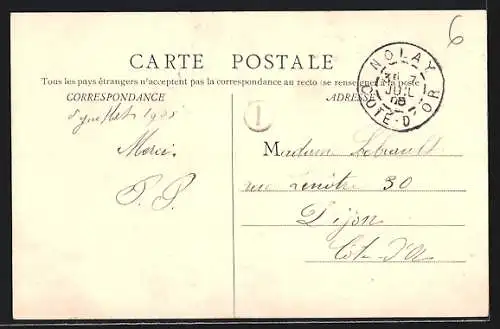 6
CARTE POSTALE
Tous les pays étrangers n'acceptent pas la correspondance au recto (se renseigner à la poste
CORRESPONDANCE
ADRESSE
NOLAY
JUIL
08
CÔTE-D'OR
1
juillet 1908
Merci
Madame Lebault
rue Lenôtre 30
Dijon
Côte d'Or